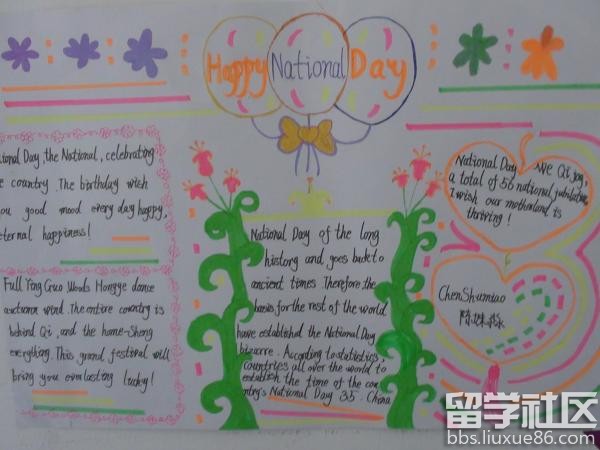 Happy National Day
ional Day the National, celebrating
e country. The birthday wish
ou good mood every day happy,
eternal happiness!
Full Ying Guo Woods Hongye dance
autumn wind. The entire country is
behind Qi, and the home-Sheng
everything. This grand festival will
bring you everlasting lucky!
National Day of the long
history and goes back to
ancient times. Therefore the
basis for the rest of the world
have established the National Day
bizarre. According to statistics,
countries all over the world to
establish the time of the cou
ntry's National Day 35. China
National Day We Qi joy,
a total of 56 national jubilation,
I wish our motherland is
thriving!
ChenShumiao
陈
留学社区
bbs.liuxue86.com